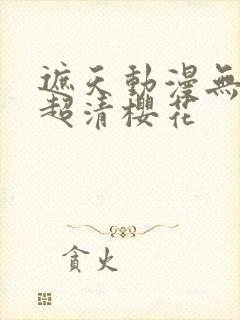 遮天動漫無
超清櫻花
貪火